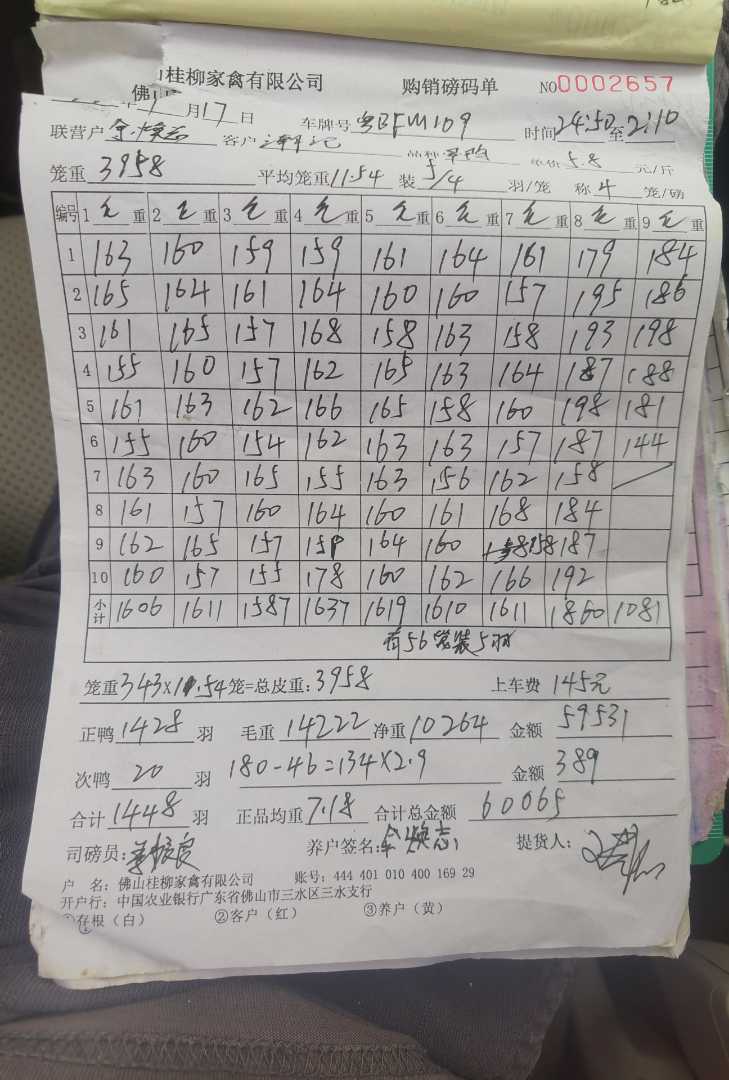 山桂柳家禽有限公司 购销磅码单 NO0002657
佛山
月17日 车牌号粤BFM109 时间24:50至2:10
联营户 客户 品种 单价5.8元/斤
笼重3958 平均笼重11.54 装5/4羽/笼 称4笼/磅
编号 1毛重 2毛重 3毛重 4毛重 5毛重 6毛重 7毛重 8毛重 9毛重
1 163 160 159 159 161 164 161 179 184
2 165 164 161 164 160 160 157 195 186
3 161 165 157 168 158 163 158 193 198
4 155 160 157 162 165 163 164 187 188
5 161 163 162 166 165 158 160 198 181
6 155 160 154 162 163 163 157 187 144
7 163 160 165 155 163 156 162 158
8 161 157 160 164 160 161 168 184
9 162 165 157 159 164 160 158 187
10 160 157 155 178 160 162 166 192
小计 1606 1611 1587 1637 1619 1610 1611 1860 1081
有56笼装5羽
笼重343×11.54笼=总皮重:3958 上车费 145元
正鸭1428羽 毛重14222净重10264 金额59531
次鸭20羽 180-46=134×2.9 金额389
合计1448羽 正品均重7.18 合计总金额60065
司磅员: 养户签名: 提货人:
户 名: 佛山桂柳家禽有限公司 账号: 444 401 010 400 169 29
开户行: 中国农业银行广东省佛山市三水区三水支行
①存根（白） ②客户（红） ③养户（黄）